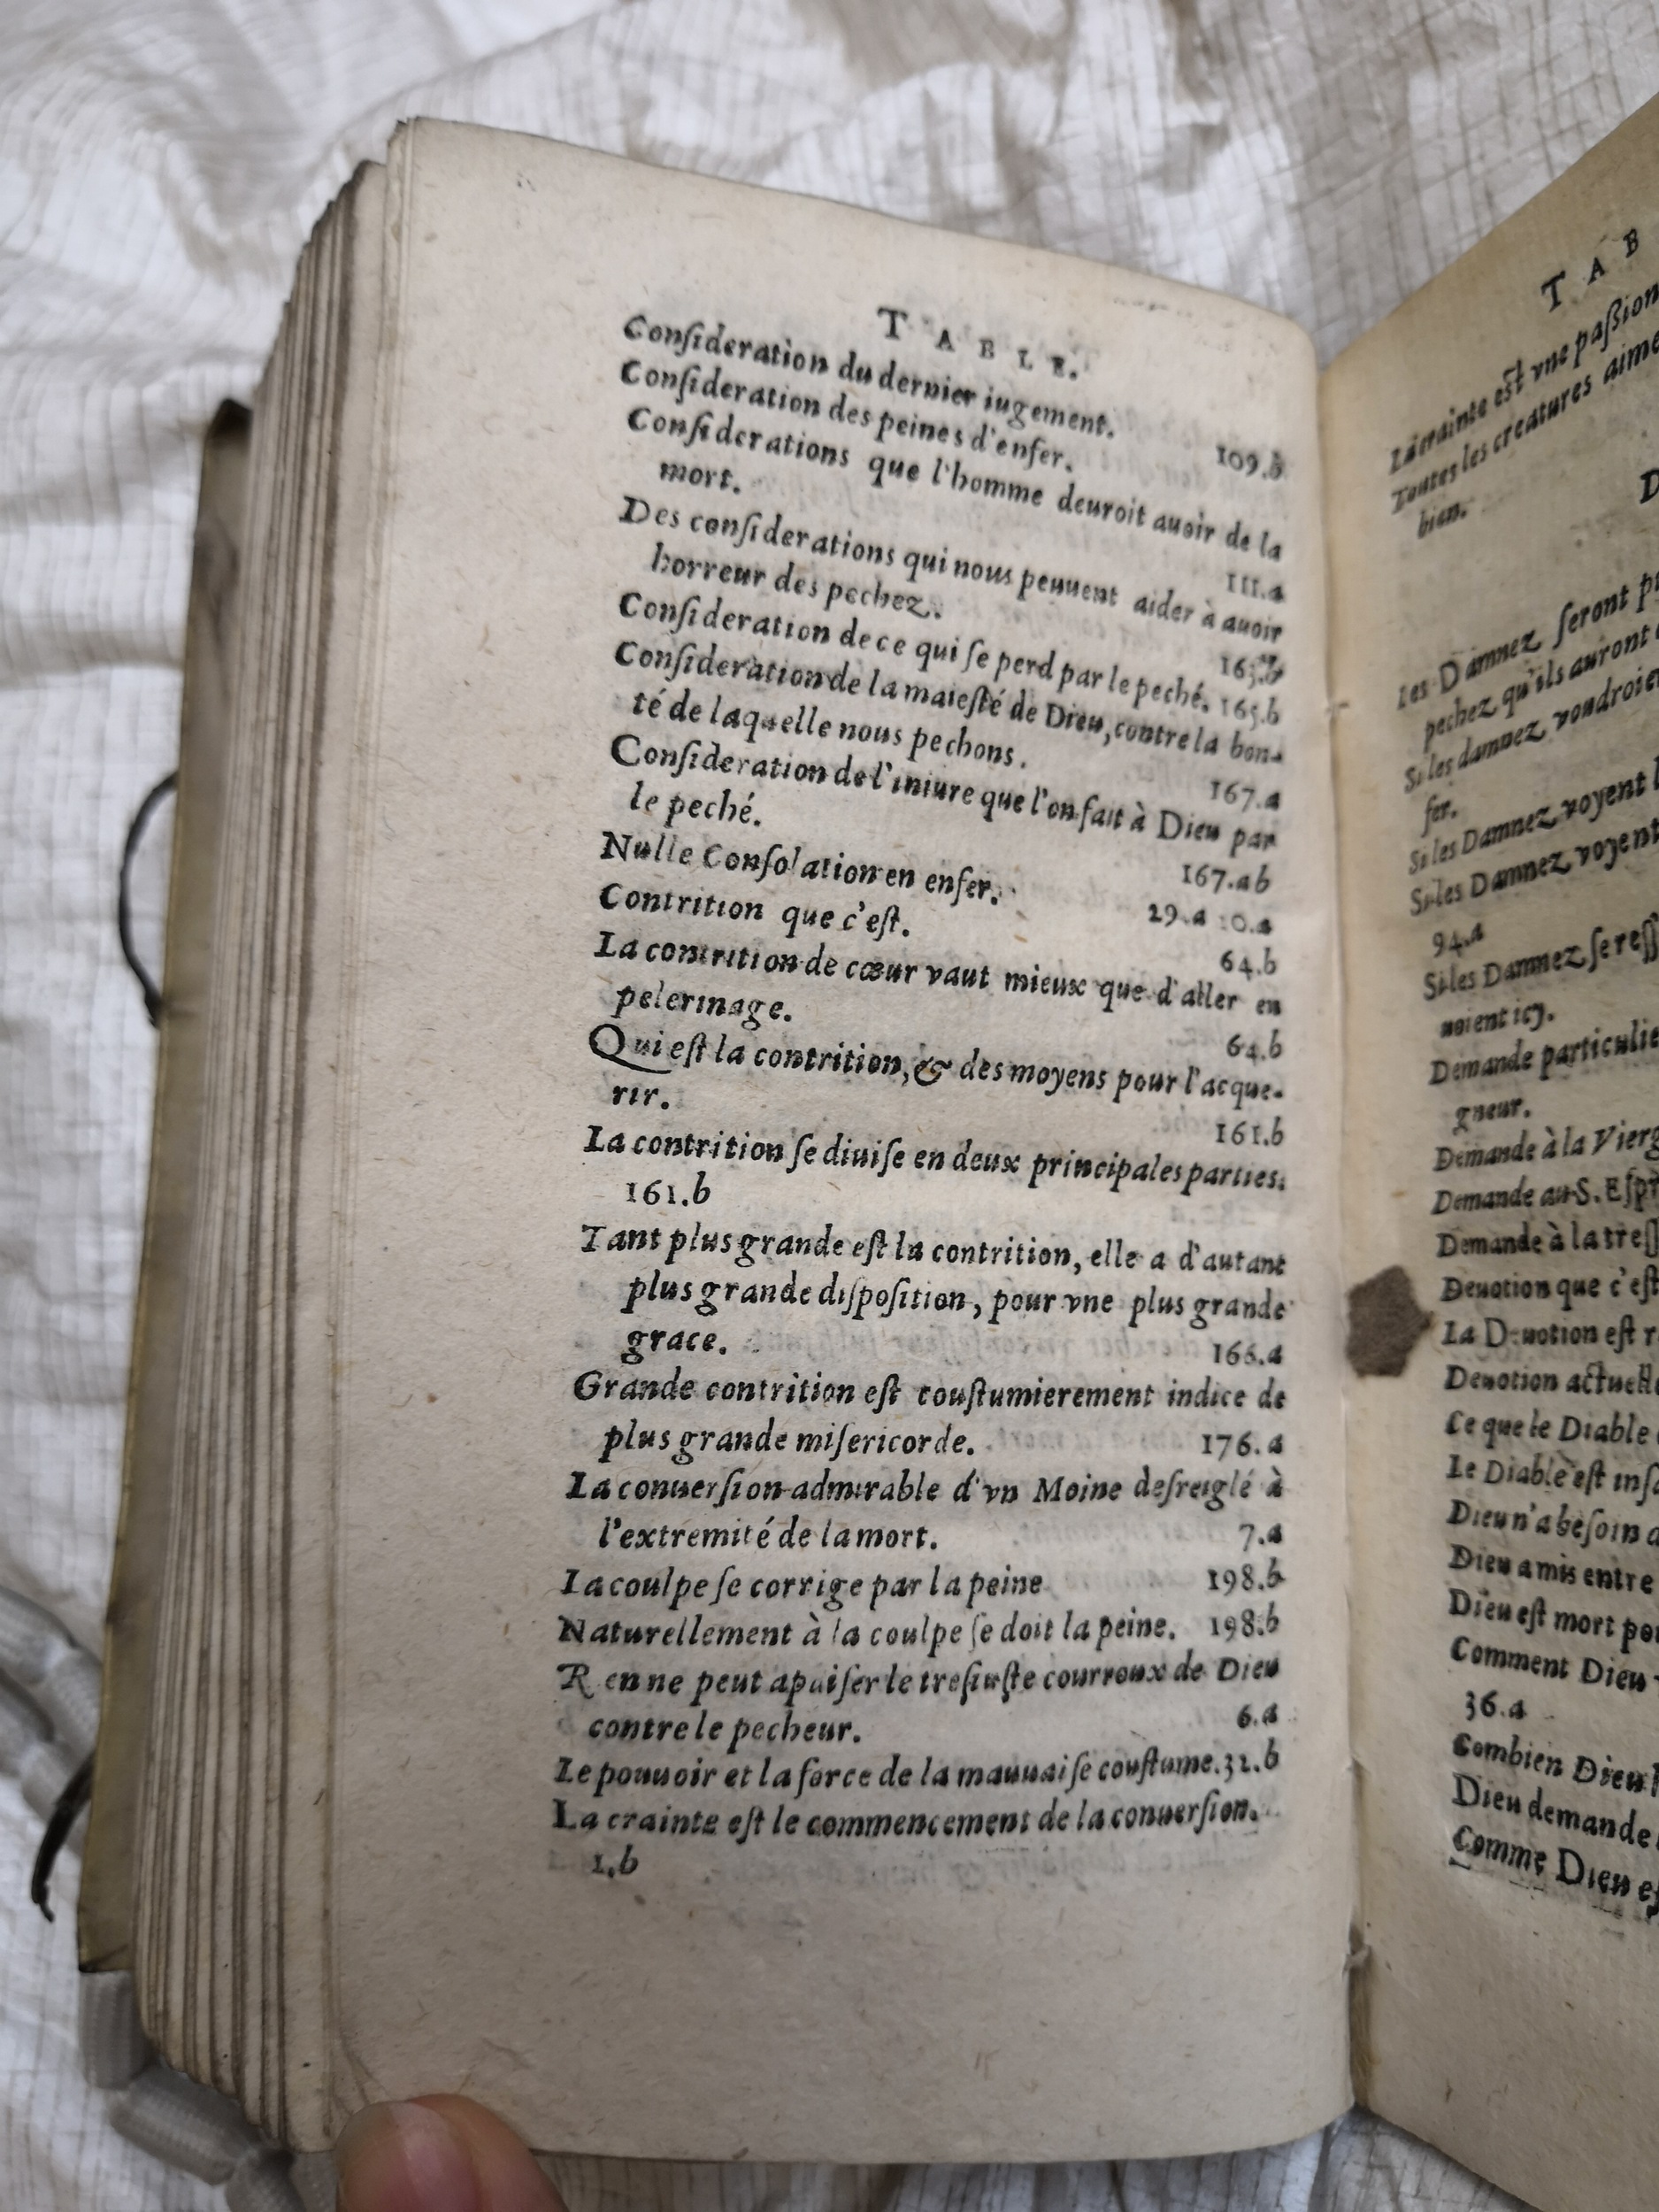 TABLE.
Conſideration du dernier iugement.
Conſideration des peines d'enfer. 109.b
Conſiderations que l'homme deuroit auoir de la
mort. 111.a
Des conſiderations qui nous peuuent aider à auoir
horreur des pechez.
Conſideration de ce qui ſe perd par le peché. 165.b
Conſideration de la maieſté de Dieu, contre la bon-
té de laquelle nous pechons. 167.a
Conſideration de l'iniure que l'on fait à Dieu par
le peché. 167.ab
Nulle Conſolation en enfer. 29.a
Contrition que c'eſt. 64.b
La contrition de cœur vaut mieux que d'aller en
pelerinage. 64.b
Qui eſt la contrition, & des moyens pour l'acque-
rir. 161.b
La contrition ſe diuiſe en deux principales parties.
161.b
Tant plus grande eſt la contrition, elle a d'autant
plus grande diſpoſition, pour vne plus grande
grace. 166.a
Grande contrition eſt couſtumierement indice de
plus grande miſericorde. 176.a
La conuerſion admirable d'vn Moine deſreiglé à
l'extremité de la mort. 7.a
La coulpe ſe corrige par la peine 198.b
Naturellement à la coulpe ſe doit la peine. 198.b
R en ne peut apaiſer le treſiuſte courroux de Dieu
contre le pecheur. 6.a
Le pouuoir et la force de la mauuaiſe couſtume. 32.b
La crainte eſt le commencement de la conuerſion.
1.b
TAB
La crainte est vne paßion
Toutes les creatures aime
bien.
D
Les Damnez ſeront p
pechez qu'ils auront
Si les damnez voudroie
fer.
Si les Damnez voyent l
Si les Damnez voyent
94.a
Si les Damnez ſe reſſ
uoient icy.
Demande particulie
gneur.
Demande à la Vierg
Demande au S. Eſpr
Demande à la treſſ
Deuotion que c'eſt
La Deuotion eſt r
Deuotion actuelle
Ce que le Diable
Le Diable eſt inſa
Dieu n'a beſoin d
Dieu a mis entre
Dieu eſt mort po
Comment Dieu
36.a
Combien Dieu
Dieu demande
Comme Dieu eſ